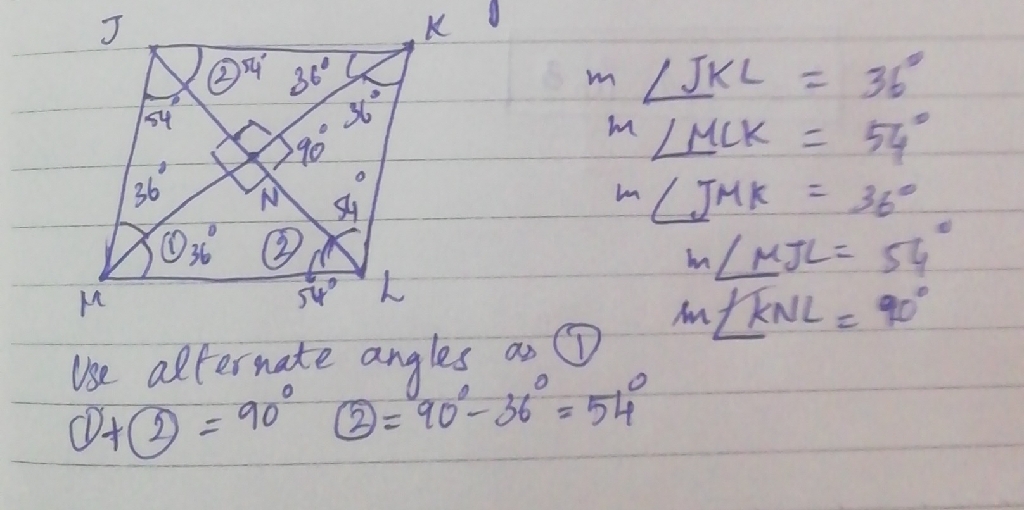 J K
② 54° 36°
54° 36°
90°
36° N 54°
① 36° ②
M 54° L
m ∠JKL = 36°
m ∠MLK = 54°
m ∠JMK = 36°
m ∠MJL = 54°
m ∠KNL = 90°
Use alternate angles as ①
①+② = 90° ② = 90° - 36° = 54°